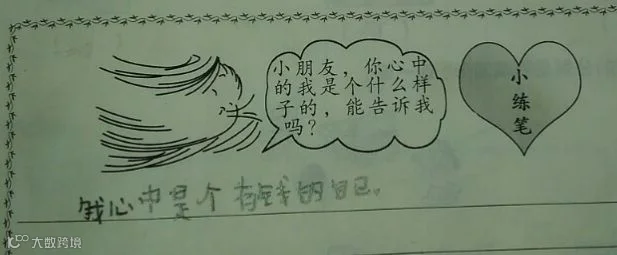 小朋友，你心中
的我是个什么样
子的，能告诉我
吗？
小练笔
我心中是个有钱的自己。
大数跨境